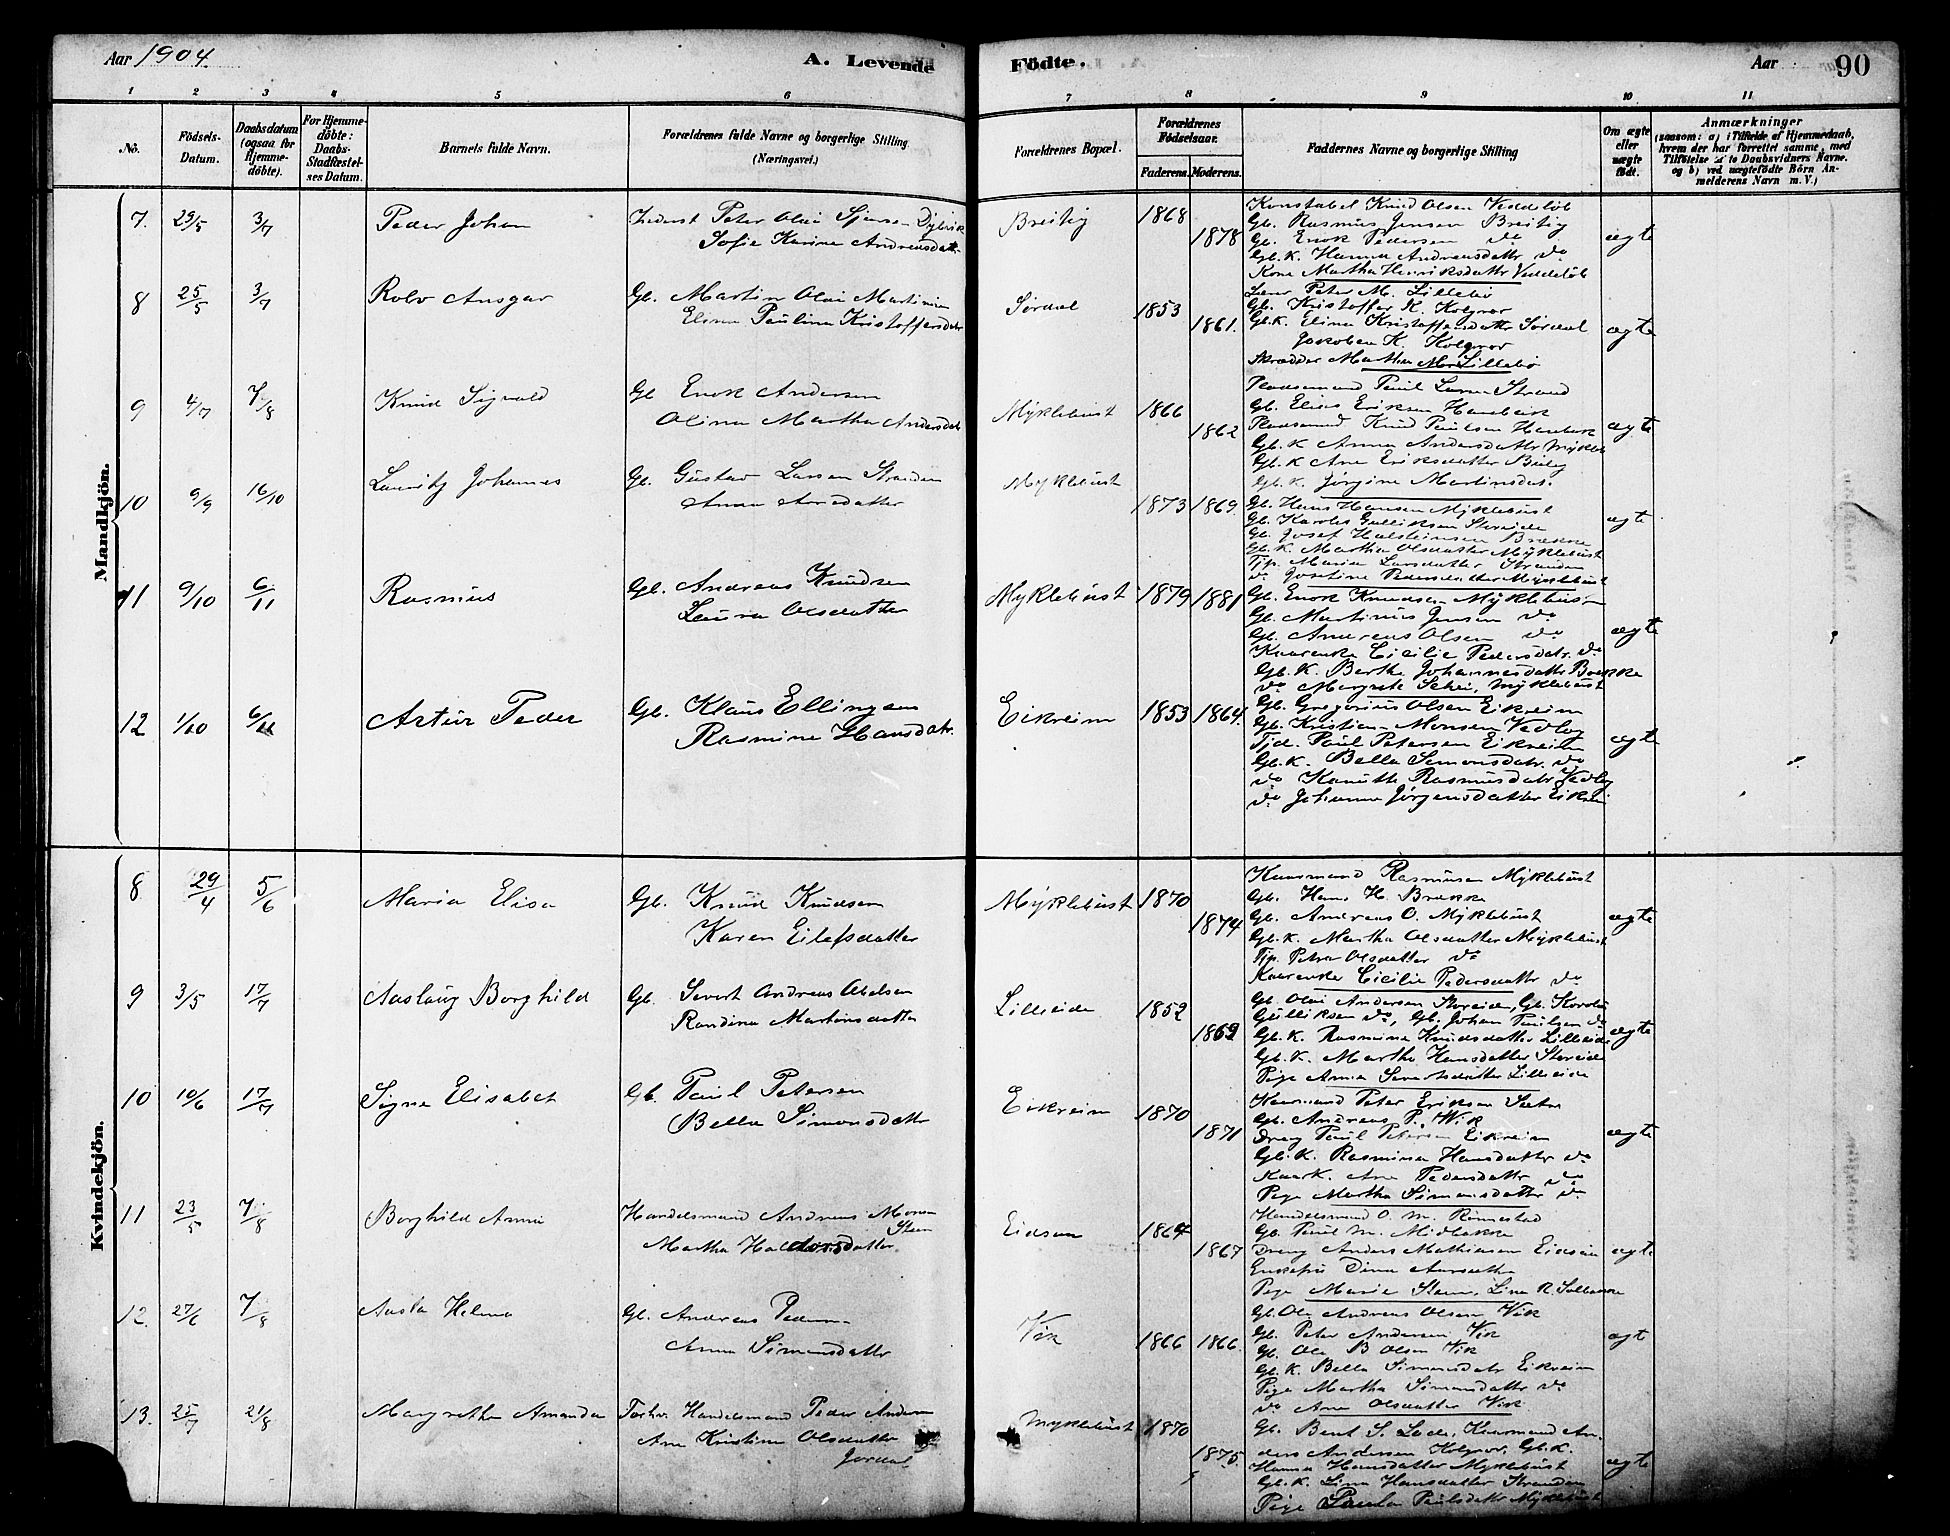 Aar 1904.
A. Levende Födte.
Aar 90
1 2 3 4 5 6 7 8 9 10 11
No.
Födsels-Datum.
Daabsdatum (ogsaa for Hjemme-döbte).
For Hjemme-döbte: Daabs-Stadfæstel-ses Datum.
Barnets fulde Navn.
Forældrenes fulde Navne og borgerlige Stilling (Næringsvei.)
Forældrenes Bopæl.
Forældrenes Födselsaar.
Faderens. Moderens.
Faddernes Navne og borgerlige Stilling
Om ægte eller uægte födt.
Anmærkninger
(saasom: a) i Tilfælde af Hjemmedaab,
hvem der har forrettet samme, med
Tilföielse af to Daabsvidners Navne.
og b) ved uægtefödte Börn An-
melderens Navn m. V.)
Mandkjön.
7. 29/5 3/7 Peder Johan
Peter Olai
Sofie Karine Andreasdatt
Breivig 1868 1878
Konstabel Knud Olsen
Gb. Rasmus Jensen Breivig
Gb. Enok Pedersen do
Gb. K. Hanna Andreasdattr do
Kone Martha Henriksdattr
ægte
8 25/5 3/7 Rolv Ansgar
Gb. Martin Olai Martinsen
Elina Paulina Kristoffersdatr
Sørdal 1853 1861.
Peter M. Lillebø
Gb. Kristoffer K. Kolgrov
Gb.K. Elina Kristoffersdattr Sørdal
Jakobea K. Kolgrov
Skrædder Marthin Lillebø
ægte
9 4/7 7/8 Knud Sigvald
Gb Enok Andersen
Olina Martha Andersdatr
Myklebust 1866 1862
Pladsmand Paul Larsen Strand
Gb. Elias Eriksen
Pladsmand Knud Paulsen
Gb. K Anna Andersdattr Mykleb
Gb. K Ane Eriksdatter
Gb. K. Jørgine Martinsdat.
ægte
10 9/9 16/10 Lauritz Johannes
Gb. Gustav Larsen Stranden
Anna Arnsdatter
Myklebust 1873 1869.
Gb. Hans Hansen Myklebust
Gb. Karolus Gulliksen Storeide
Gb. Josef Halsteinsen Brække
Gb. K. Martha Olsdatter Myklebust
Tjp. Maria Larsdatter Stranden
do Josefine Pedersdatter Myklebust
ægte
11 9/10 6/11 Rasmus
Gb. Andreas Knudsen
Laura Olsdatter
Myklebust 1879 1881
Gb. Enok Knudsen Myklebust
Gb. Martinus Jensen do
Gb. Andreas Olsen do
Kaarenke Cicilie Pedersdatr. do
Gb. K. Berthe Johannesdattr Brække
do Margrete Myklebust
ægte
12 1/10 6/11 Artur Peder
Gb. Klaus Ellingsen
Rasmine Hansdatr.
Eikreim 1853 1864.
Gb. Gregorius Olsen Eikreim
Gb. Kristian Monsen Vedvig
Tjd. Paul Petersen Eikreim
Gb. K. Bella Simonsdatr. do
do Kanutte Rasmusdatr Vedvig
do Johanna Jørgensdatter Eikreim
ægte
Kvindekjön.
8 29/4 5/6 Maria Elisa
Gb. Knud Knudsen
Karen Eilefsdatter
Myklebust 1870 1874
Rasmusen Myklebust
Gb. Hans H. Brække
Gb. Andreas O. Myklebust
Gb. K. Martha Olsdatter Myklebust
Tjp. Petra Olsdatter do
Kaarenke Cicilie Pedersdattr do
ægte
9 3/5 17/7 Aaslaug Borghild
Gb. Severt Andreas Abelsen
Randina Martinsdatter
Lilleeide 1852 1869
Gb. Olai Andersen Storeide, Gb. Karolus
Gulliksen do, Gb. Johan Paulsen do
Gb. K. Rasmina Knudsdatter Lilleeide
Gb. K. Marthe Hansdatter Storeide
Pige Anna Severtsdatter Lilleeide
ægte
10 10/6 17/7 Signe Elisabet
Gb. Paul Petersen
Bella Simonsdattr
Eikreim 1870 1871
Peter Eriksen Sætre
Gb. Andreas P. Wik
Dreng Paul Petersen Eikreim
Gb. K. Rasmine Hansdattr do
Kaark. Ane Pedersdattr do
Pige Martha Simonsdattr do
ægte
11 23/5 7/8 Borghild Anna
Handelsmand Andreas Mons.
Steen
Martha Haldorsdatter.
Eidsen 1864 1867
Handelsmand O. M. Rönnestad
Gb. Paul M. Midbøkke
Dreng Anders Mathiasen Eidsen
Enkefru Dina
Pige Marie Steen, Lina R.
ægte
12. 27/6 7/8 Aasta Helma
Gb. Andreas Pedersen
Anna Simonsdattr
Vik 1866 1866.
Gb. Ole Andreas Olsen Vik
Gb. Peter Andersen Vik
Gb. Ole B Olsen Vik
Gb. K. Bella Simonsdatr Eikreim
Pige Martha Simonsdattr do
do Ane Olsdatter Vik.
ægt
13. 25/7 21/8 Margrethe Amanda
Handelsmand Peder Andersen
Ane Kristine Olsdatter
Myklebust 1870 1875.
Gb. Bent S. Lode, An-
ders Andersen Kolgrov, Gb. K.
Hanna Hansdatter Myklebust
Gb. K. Lina Hansdatter Stranden
Pige Paula Paulsdattr Myklebust
ægte